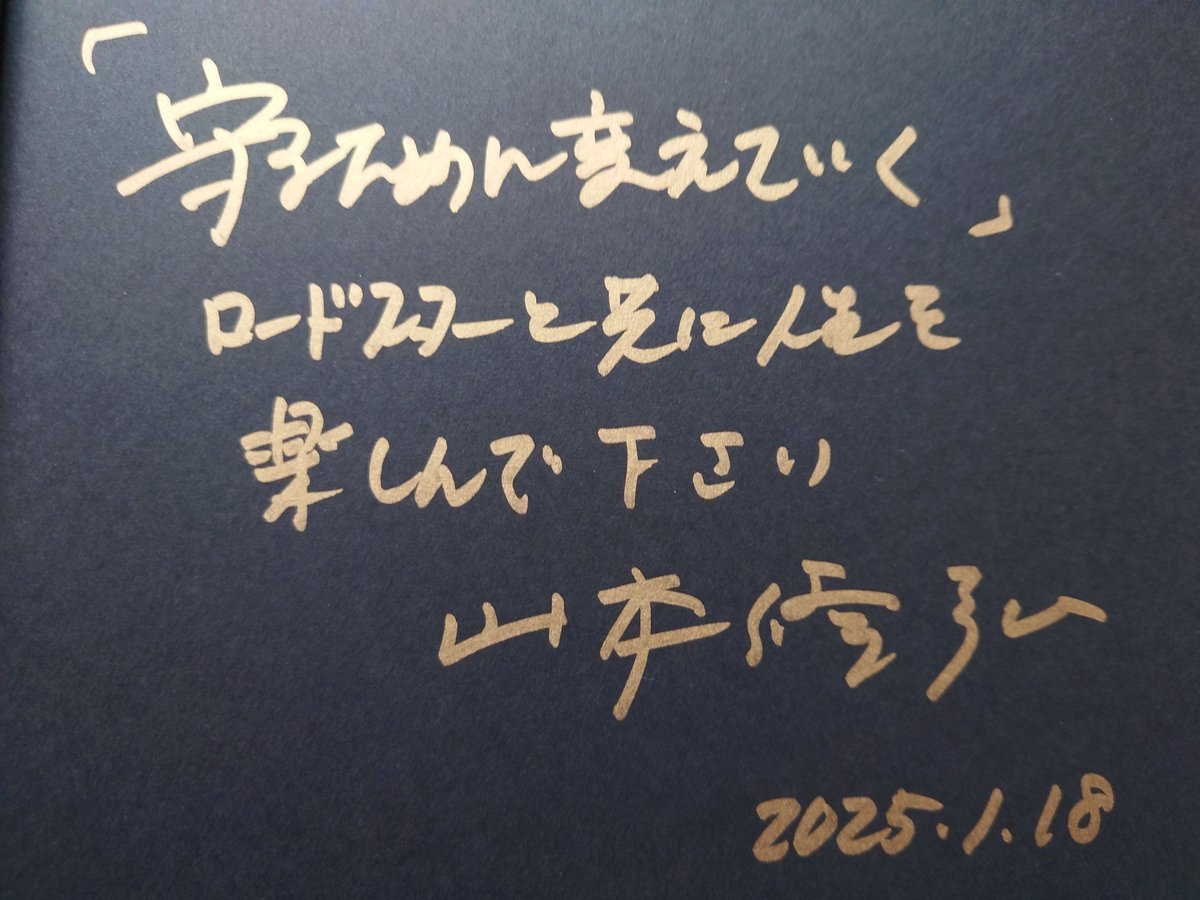 「守るために変えていく」
ロードスターと共に人生を
楽しんで下さい
山本修弘
2025.1.18